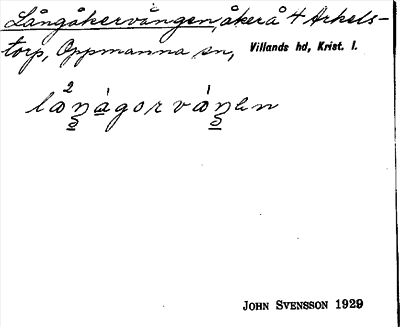 Långåkervången, åker å 4 Arkels-
torp, Oppmanna sn, Villands hd, Krist. l.
JOHN SVENSSON 1929